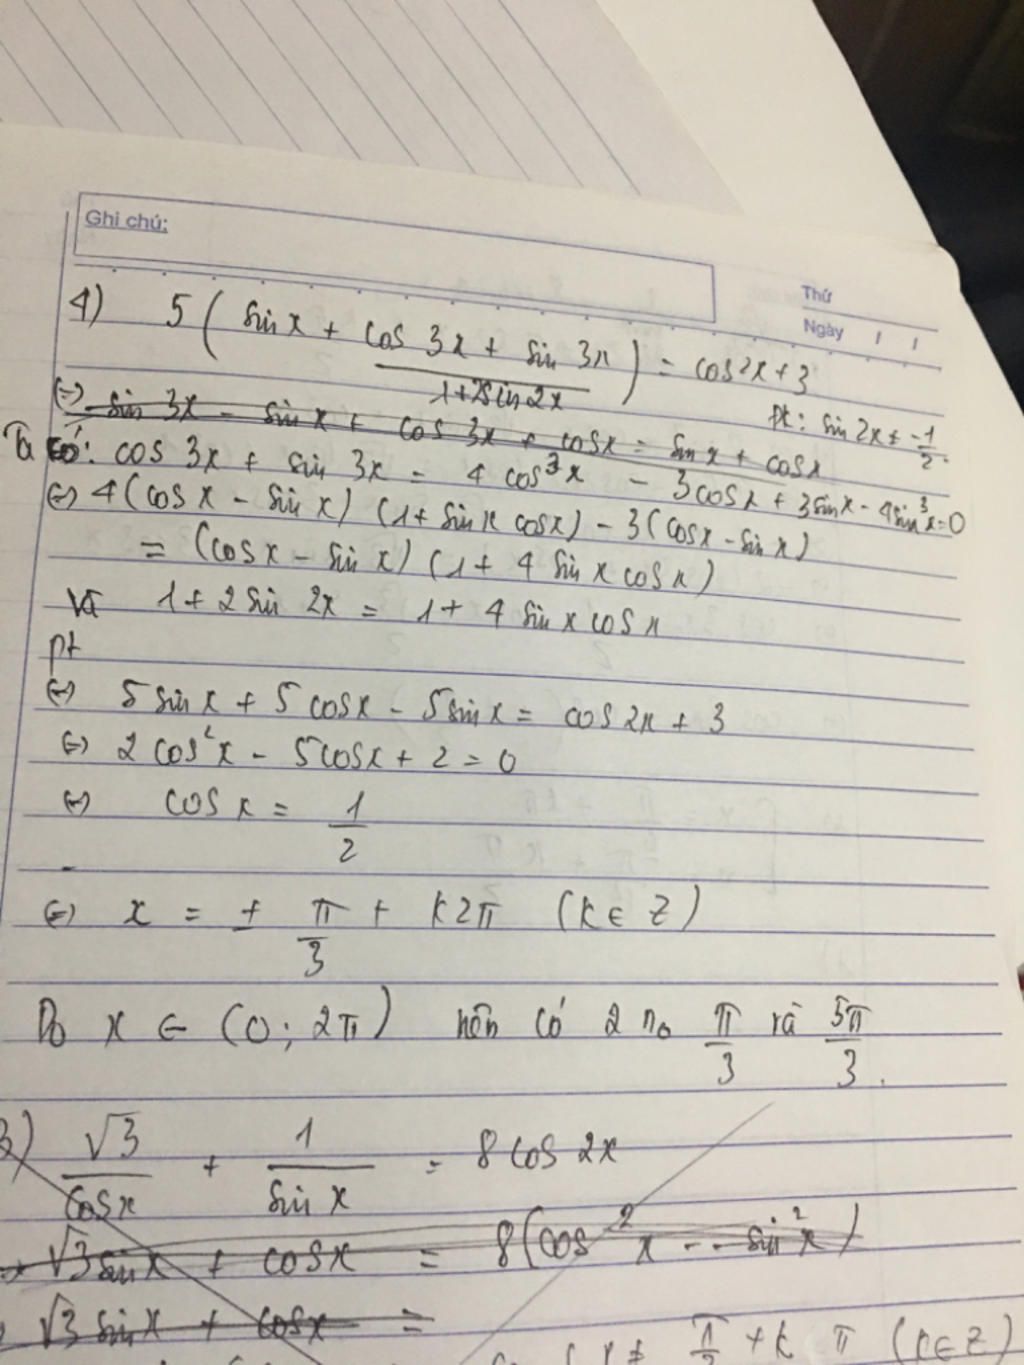 Ghi chú:
Thứ
Ngày / /
4) 5 ( sin x + (cos 3x + sin 3x)/(1+2sin2x) ) = cos2x + 3
⇔ sin 3x - sin x + cos 3x + cosx = sin x + cosx
pt: sin 2x ≠ -1/2.
Ta có: cos 3x + sin 3x = 4 cos³x - 3cosx + 3sinx - 4sin³x=0
⇔ 4(cos x - sin x) (1+ sin x cosx) - 3(cosx - sin x)
= (cosx - sin x) (1 + 4 sin x cos x)
Và 1+2 sin 2x = 1 + 4 sin x cos x
pt
⇔ 5 sin x + 5 cosx - 5sin x = cos 2x + 3
⇔ 2 cos²x - 5cosx + 2 = 0
⇔ cos x = 1/2
⇔ x = ± π/3 + k2π (k ∈ Z)
Do x ∈ (0; 2π) nên có 2 no π/3 và 5π/3.
3) √3/cosx + 1/sin x = 8 cos 2x
√3sin x + cosx = 8(cos²x - sin²x)
√3 sin x + cosx =
x ≠ π/2 + k π (k∈Z)